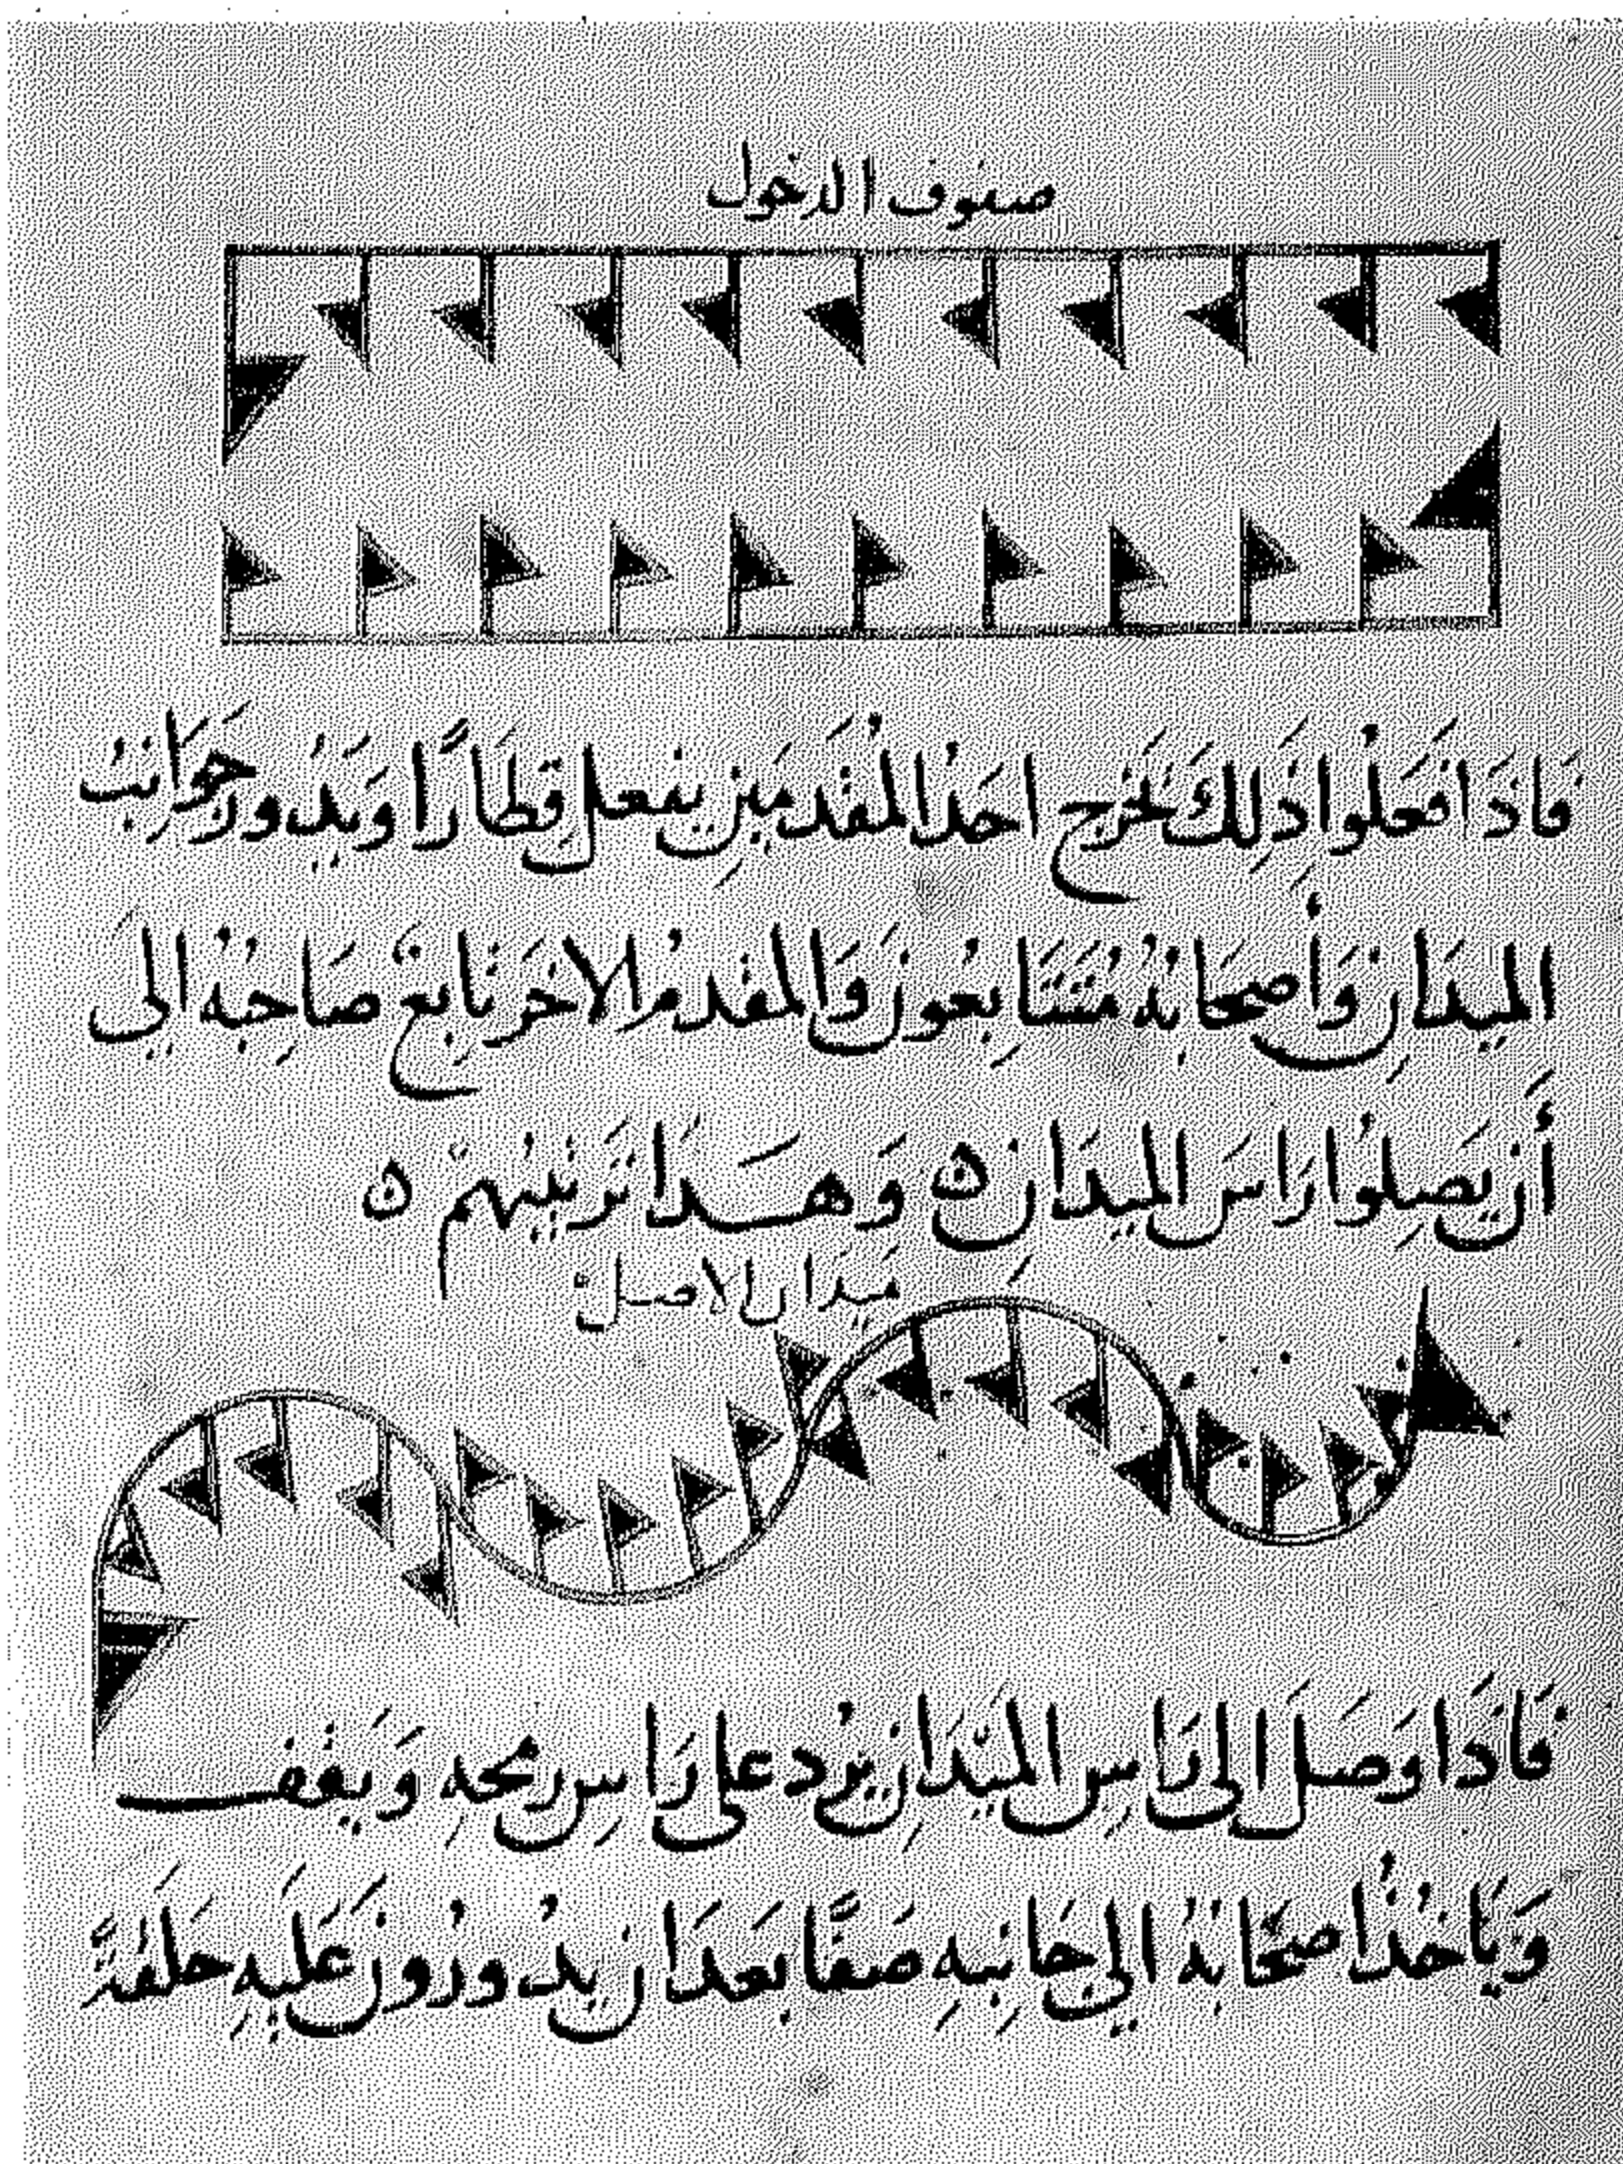 صفوف الدخول
فَاذَا فَعَلُوا ذَلِكَ يَخْرج احَدُ المُقَدمَينِ يفعل قِطَارًا وَيَدُور جَوَانبُ
الميدَانِ وَأصحَابُهُ مُتَتَابِعُونَ وَالمقدمُ الاخَر تَابِعْ صَاحِبُهُ اليَ
أَن يَصِلُوا رَاسَ الميدَان ٥ وَهَـــذَا تَرتيبُهمْ ٥
مَيدَان الاصل
فَاذَا وَصَلَ الى رَاسِ الميَدَانِ يَردُ على رَاسِ رمحهِ وَيقف
وَيَاخذُ اصحَابُهُ الي جَانبِهِ صَفًا بَعدَ ان يدُورُونَ عَلَيهِ حَلقةً